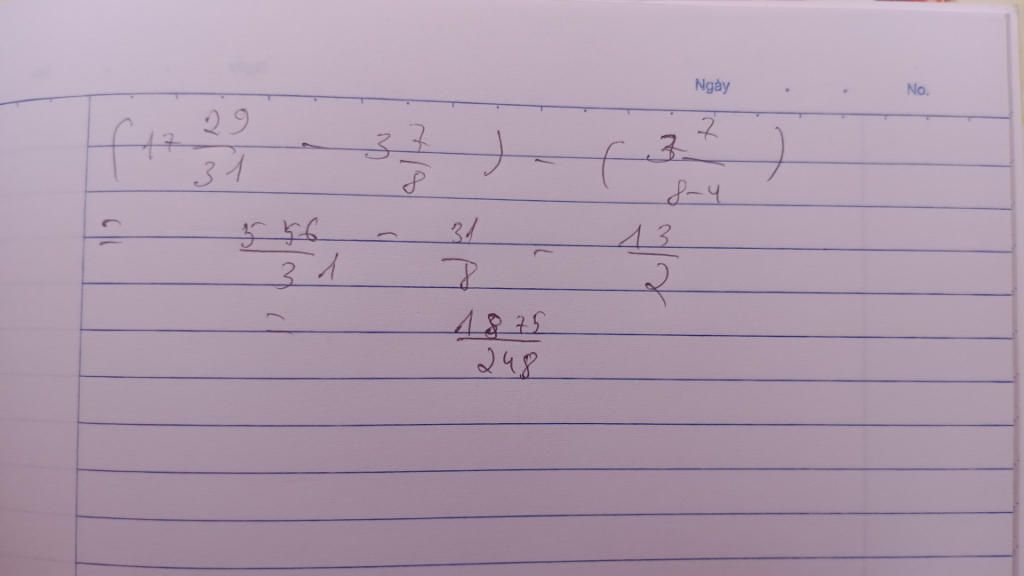 Ngày . . No.
(17 29/31 - 3 7/8) - (3 7/8-4)
= 556/31 - 31/8 - 13/2
= 1875/248